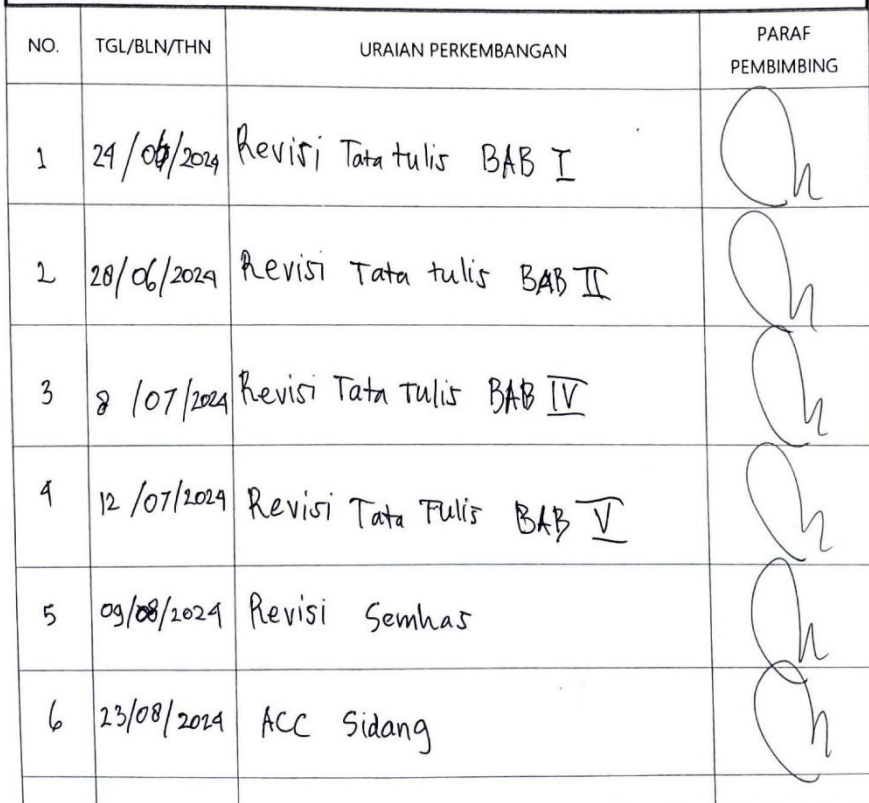 NO. TGL/BLN/THN URAIAN PERKEMBANGAN PARAF PEMBIMBING
1 24/06/2024 Revisi Tata tulis BAB I
2 28/06/2024 Revisi Tata tulis BAB II
3 8/07/2024 Revisi Tata Tulis BAB IV
4 12/07/2024 Revisi Tata Tulis BAB V
5 09/08/2024 Revisi Semhas
6 23/08/2024 ACC Sidang